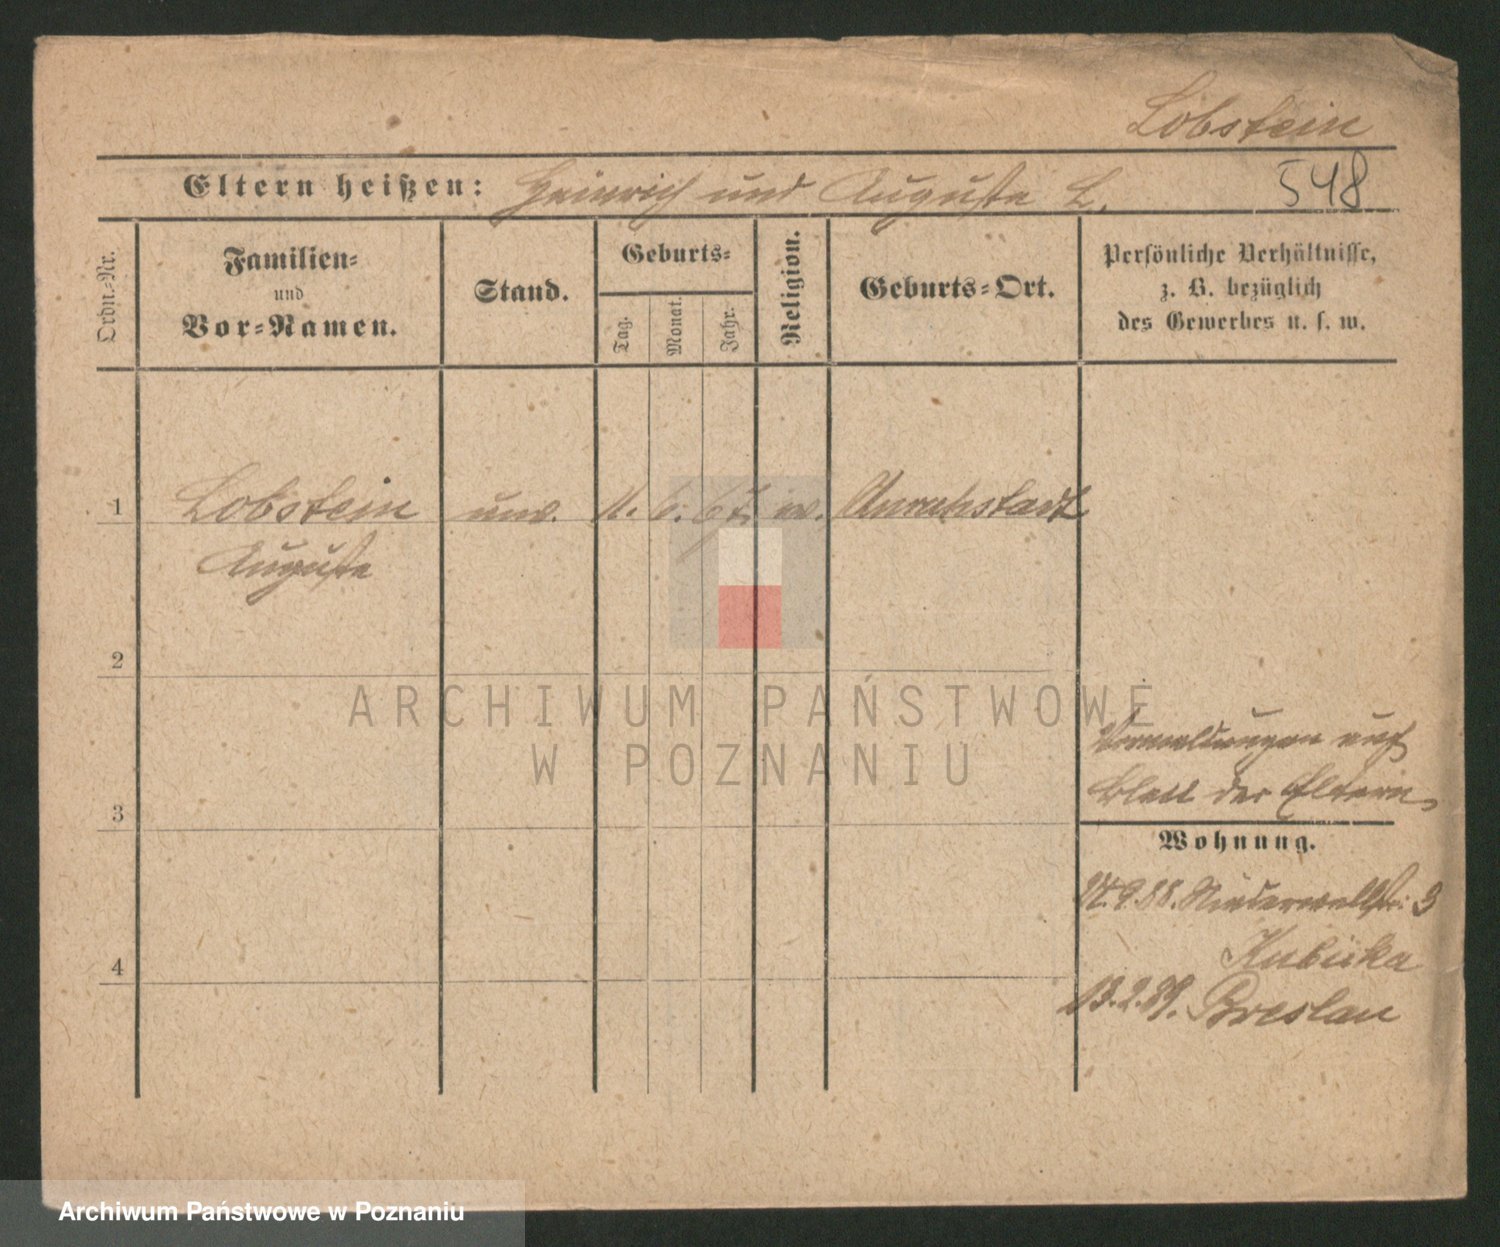 Lobstein
Eltern heißen: Heinrich und Auguste L.
548
Ordn.-Nr.
Familien-
und
Vor-Namen.
Stand.
Geburts-
Tag.
Monat.
Jahr.
Religion.
Geburts-Ort.
Persönliche Verhältnisse,
z. B. bezüglich
des Gewerbes u. s. w.
1
Lobstein unv. 11. 6. 67. ev. Unruhstadt
Auguste
2
ARCHIWUM PAŃSTWOWE
W POZNANIU
Vermeldungen auf
Blatt der Eltern
3
Wohnung.
9.88. Niederwallstr. 3
Kubicka
4
13.2.89. Breslau
Archiwum Państwowe w Poznaniu